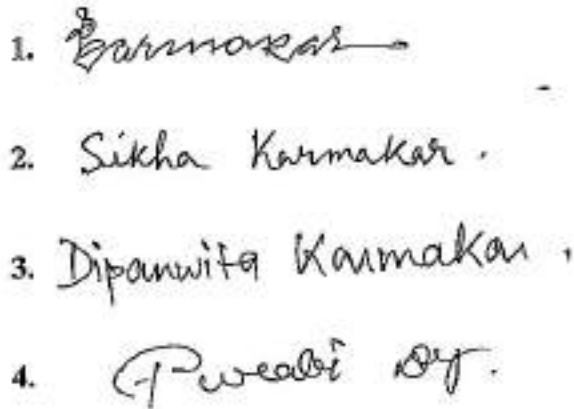 1. Karmakar
2. Sikha Karmakar.
3. Dipanwita Karmakar.
4. Purabi Dey.